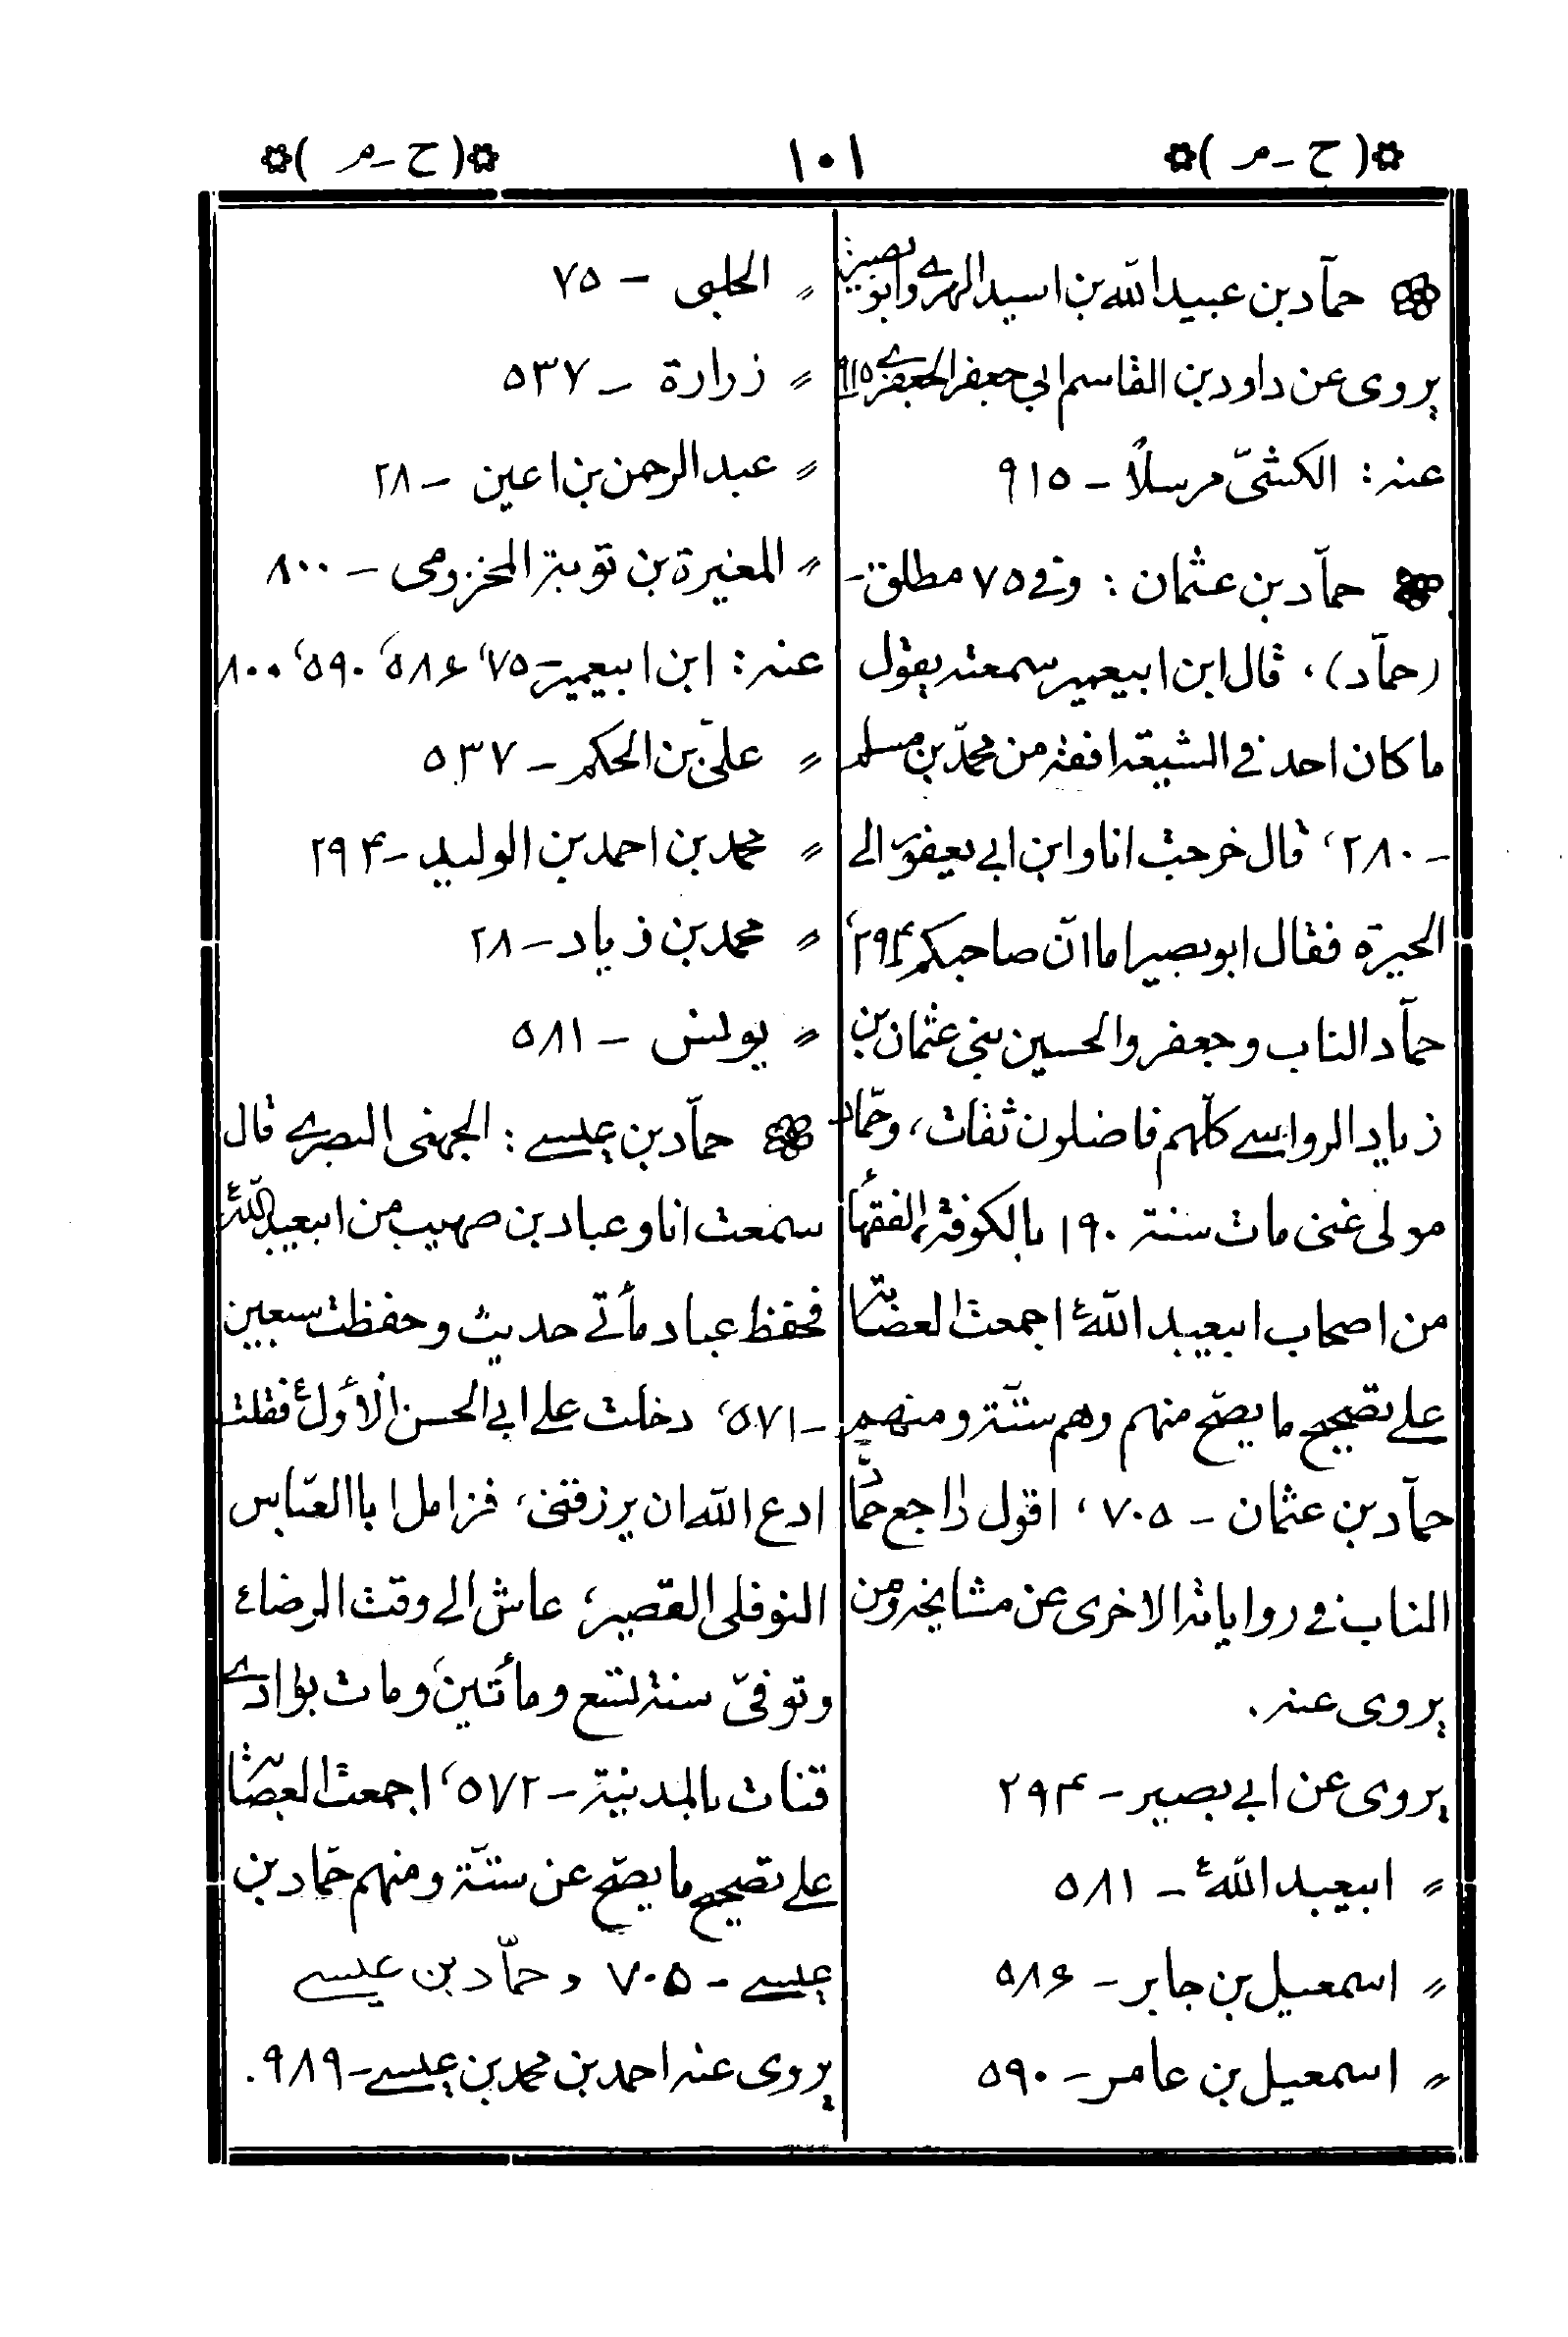 (ح - م) ١٠١ (ح - م)
حمّاد بن عبيد الله بن اسيد الهروي وابو بصير:
يروى عن داود بن القاسم ابي جعفر الجعفري ٩١٥
عنه: الكشّي مرسلًا - ٩١٥
حمّاد بن عثمان: وفي ٧٥ مطلق -
(حمّاد)، قال ابن ابيعمير سمعته يقول
ما كان احد في الشيعة افقه من محمّد بن مسلم
- ٢٨٠، قال خرجت انا وابن ابي يعفور الى
الحيرة فقال ابو بصير اما انّ صاحبكم ٢٩۴،
حمّاد الناب وجعفر والحسين بنى عثمان بن
زياد الرواسي كلّهم فاضلون ثقات، وحمّاد
مولى غنى مات سنة ١٩٠ بالكوفة، الفقهاء
من اصحاب ابيعبد اللهؑ اجمعت العصابة
على تصحيح ما يصحّ منهم وهم ستّة ومنهم
حمّاد بن عثمان - ٧٠٥، اقول راجع حمّاد
الناب في رواياته الاخرى عن مشايخه ومن
يروى عنه.
يروى عن ابي بصير - ٢٩۴
〃 ابيعبد اللهؑ - ٥٨١
〃 اسمعيل بن جابر - ٥٨۶
〃 اسمعيل بن عامر - ٥٩٠
〃 الحلبى - ٧٥
〃 زرارة - ٥٣٧
〃 عبد الرحمن بن اعين - ٢٨
〃 المغيرة بن توبة المخزومى - ٨٠٠
عنه: ابن ابيعمير - ٧٥، ٥٨۶، ٥٩٠، ٨٠٠
〃 علىّ بن الحكم - ٥٣٧
〃 محمد بن احمد بن الوليد - ٢٩۴
〃 محمد بن زياد - ٢٨
〃 يونس - ٥٨١
حمّاد بن عيسى: الجهنى البصري قال
سمعت انا وعباد بن صهيب من ابيعبد اللهؑ
فحفظ عباد مأتي حديث وحفظت سبعين
- ٥٧١، دخلت على ابي الحسن الأولؑ فقلت
ادع الله ان يرزقنى، فزامل ابا العبّاس
النوفلى القصير، عاش الى وقت الرضاؑ
وتوفىّ سنة تسع ومأتين، ومات بوادي
قنات بالمدينة - ٥٧٢، اجمعت العصابة
على تصحيح ما يصحّ عن ستّة ومنهم حمّاد بن
عيسى - ٧٠٥ وحمّاد بن عيسى
يروى عنه احمد بن محمد بن عيسى - ٩٨٩.